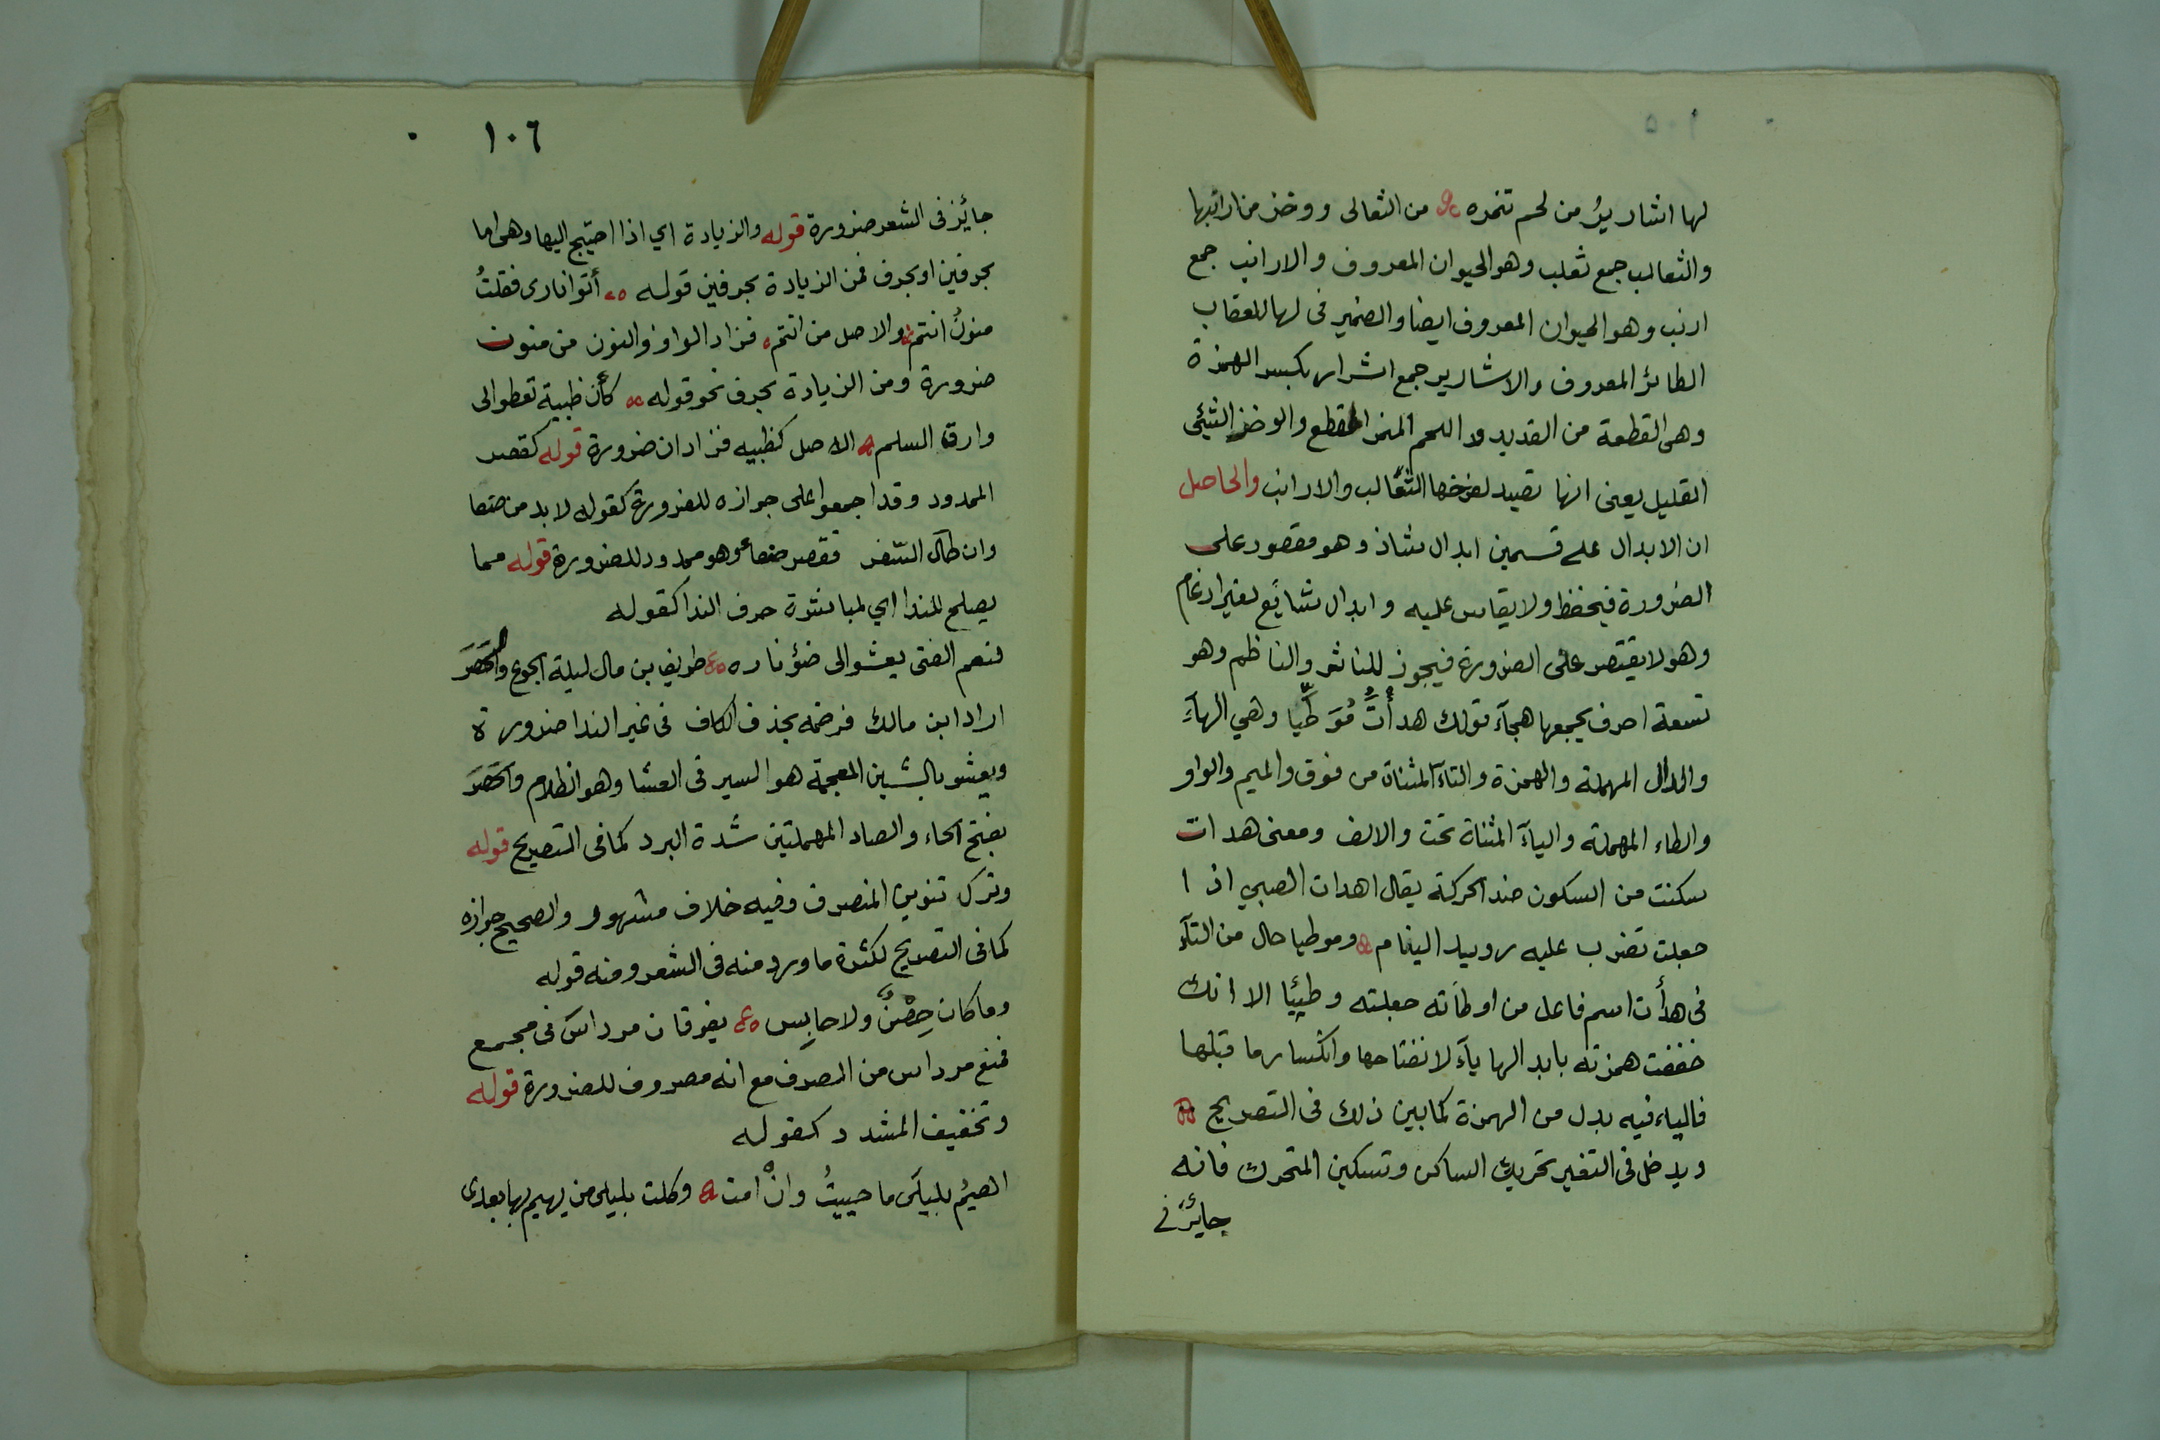 ١٠٥
لها اشارير من لحم تتمره من الثعالى ووخز من ارانبها
والثعالب جمع ثعلب وهو الحيوان المعروف والارانب جمع
ارنب وهو الحيوان المعروف ايضا والضمير فى لها للعقاب
الطائر المعروف والاشارير جمع اشرار بكسر الهمزة
وهى القطعة من القديد واللحم المتمر المقطع والوخز الشيئى
القليل يعنى انها تصيد لفرخها الثعالب والارانب والحاصل
ان الابدال على قسمين ابدال شاذ وهو مقصور على
الضرورة فيحفظ ولا يقاس عليه وابدال شايع لغير ادغام
وهو لا يقتصر على الضرورة فيجوز للناثر والناظم وهو
تسعة احرف يجمعها هجآء قولك هدأتُ مُوَطِّيا وهي الهآء
والدال المهملة والهمزة والتآء المثناة من فوق والميم والواو
والطاء المهملة واليآء المثناة تحت والالف ومعنى هدات
سكنت من السكون ضد الحركة يقال اهدات الصبي اذا
جعلت تضرب عليه رويدا لينام وموطيا حال من التآء
فى هدأت اسم فاعل من اوطأته جعلته وطيئا الا انك
خففت همزته بابدالها يآء لانفتاحها وانكسار ما قبلها
فالياء فيه بدل من الهمزة كما بين ذلك فى التصريح
ويدخل فى التغير تحريك الساكن وتسكين المتحرك فانه
جائز فى
١٠٦
جائز فى الشعر ضرورة قوله والزيادة اي اذا احتيج اليها وهى اما
بحرفين او بحرف فمن الزيادة بحرفين قوله أتوا نارى فقلتُ
منونُ انتم والاصل من انتم فزاد الواو والنون فى منون
ضرورة ومن الزيادة بحرف نحو قوله كأن ظبية تعطو الى
وارق السلم الاصل كظبيه فزاد ان ضرورة قوله كقصر
الممدود وقد اجمعوا على جوازه للضرورة كقوله لا بد من صنعا
وان طال السفر فقصر صنعاء وهو ممدود للضرورة قوله مما
يصلح للندا اي لمباشرة حرف الندا كقوله
لنعم الفتى يعشو الى ضؤ ناره طريف بن مال ليلة الجوع والحَصَرَ
اراد ابن مالك فرخمه بحذف الكاف فى غير الندا ضرورة
ويعشو بالشين المعجمة هو السير فى العشا وهو الظلام والحَصَرَ
بفتح الحاء والصاد المهملتين شدة البرد كما فى التصريح قوله
وترك تنوين المنصرف وفيه خلاف مشهور والصحيح جوازه
كما فى التصريح لكثرة ما ورد منه فى الشعر ومنه قوله
وما كان حِصْنٌ ولا حابس يفوقان مرداسَ فى مجمع
فمنع مرداس من الصرف مع انه مصروف للضرورة قوله
وتخفيف المشدد كقوله
اهيمُ بليلَى ما حييتُ وانْ امت وكلت بليلى من يهيم بها بعدى